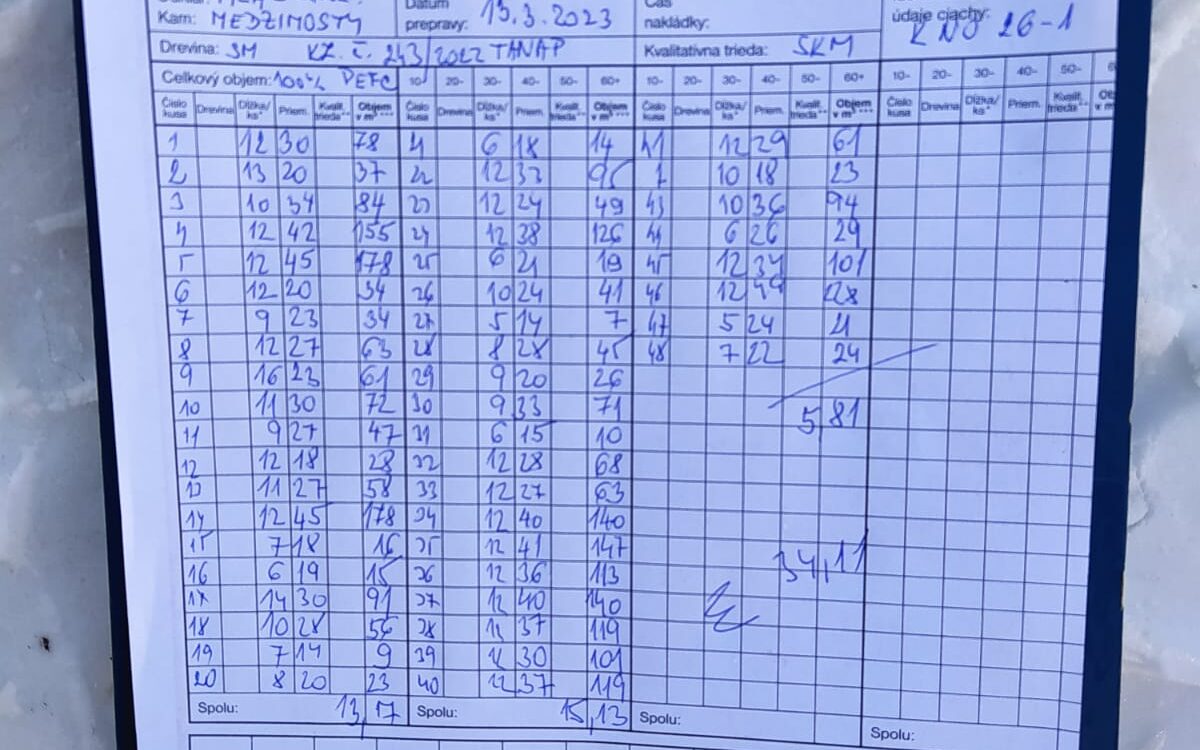 Kam: MEDZIMOSTY Dátum prepravy: 13.3.2023 Čas nakládky: údaje ciachy: KNJ 26-1
Drevina: SM KZ. č. 243/2022 TANAP Kvalitatívna trieda: SKM
Celkový objem: 100% PEFC 10- 20- 30- 40- 50- 60+ 10- 20- 30- 40- 50- 60+ 10- 20- 30- 40- 50-
Číslo kusa Drevina Dĺžka/ ks* Priem. Kvalit. trieda** Objem v m³*** Číslo kusa Drevina Dĺžka/ ks* Priem. Kvalit. trieda** Objem v m³*** Číslo kusa Drevina Dĺžka/ ks* Priem. Kvalit. trieda** Objem v m³*** Číslo kusa Drevina Dĺžka/ ks* Priem. Kvalit. trieda**
1 12 30 78 21 6 18 14 41 12 29 61
2 13 20 37 22 12 33 95 10 18 23
3 10 34 84 23 12 24 49 43 10 36 94
4 12 42 155 24 12 38 126 44 6 26 29
5 12 45 178 25 6 21 19 45 12 34 101
6 12 20 34 26 10 24 41 46 12
7 9 23 34 27 5 14 7 47 5 24 21
8 12 27 63 28 8 28 45 48 7 22 24
9 16 23 61 29 9 20 26
10 11 30 72 30 9 33 71 5,81
11 9 27 47 31 6 15 10
12 12 18 28 32 12 28 68
13 11 27 58 33 12 27 63
14 12 45 178 34 12 40 140
15 7 18 16 35 12 41 147
16 6 19 15 36 12 36 113 34,11
17 14 30 91 37 12 40 140
18 10 28 56 38 12 37 119
19 7 14 9 39 30 101
20 8 20 23 40 12 37 119
Spolu: 13,17 Spolu: 15,13 Spolu: Spolu: